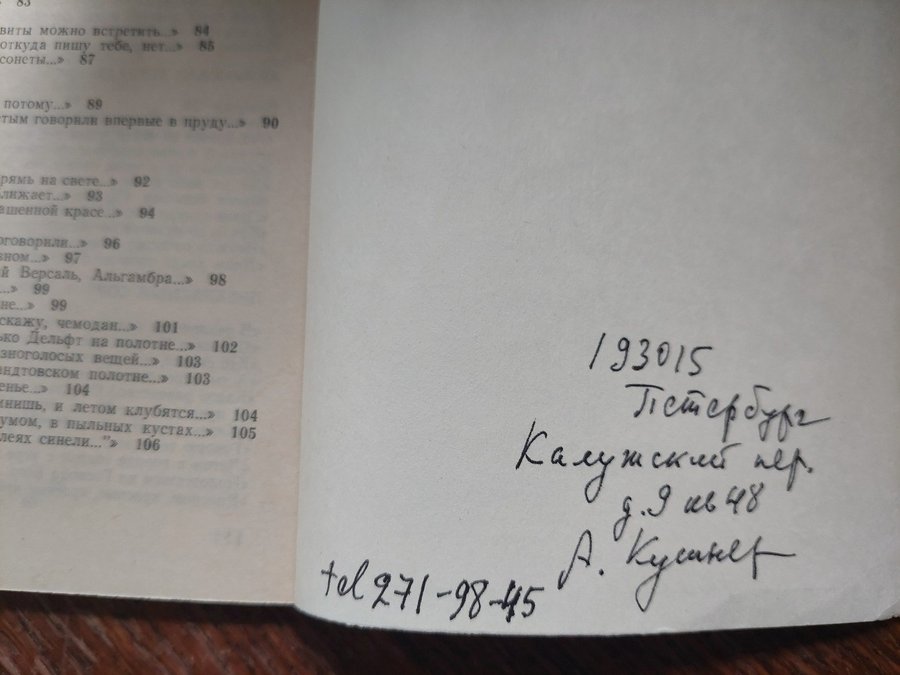 83
виты можно встретить...» 84
откуда пишу тебе, нет...» 85
сонеты...» 87
потому...» 89
тым говорили впервые в пруду...» 90
рямь на свете...» 92
лижает...» 93
ашенной красе...» 94
оговорили...» 96
вном...» 97
й Версаль, Альгамбра...» 98
...» 99
не...» 99
скажу, чемодан...» 101
ько Дельфт на полотне...» 102
зноголосых вещей...» 103
андтовском полотне...» 103
енье...» 104
мнишь, и летом клубятся...» 104
умом, в пыльных кустах...» 105
леях синели..."» 106
193015
Петербург
Калужский пер.
д.9 кв 48
А. Кушнер
tel 271-98-45